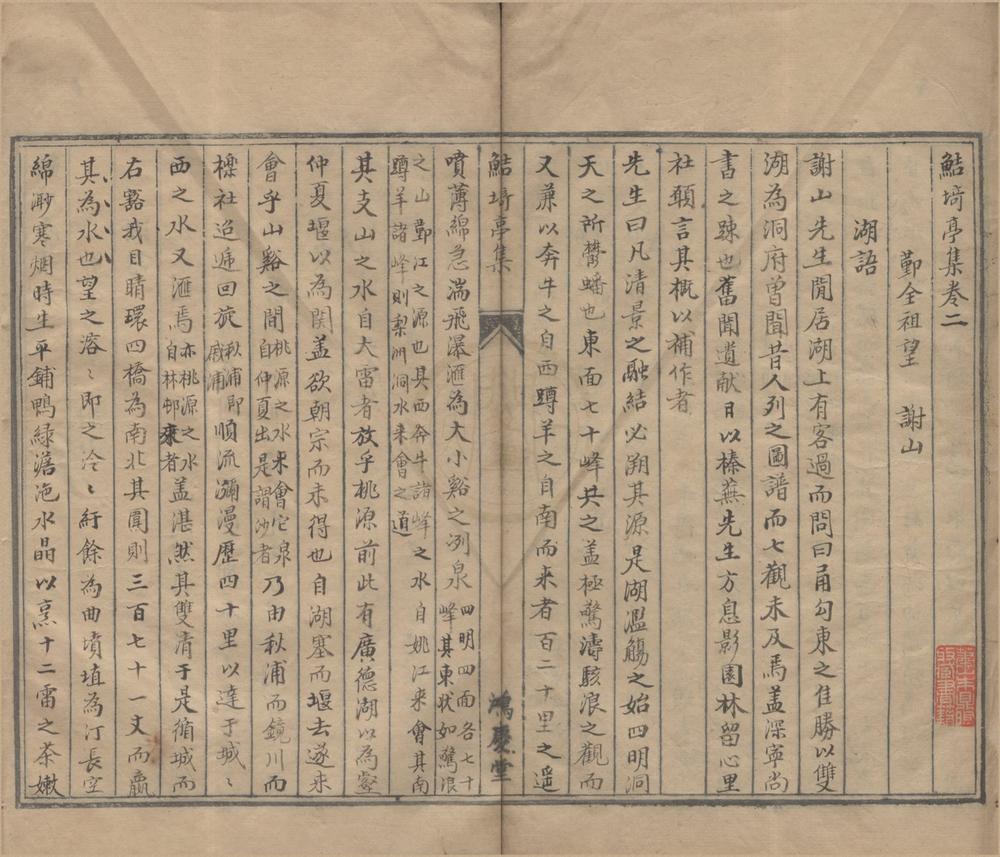 鮚埼亭集卷二
鄞全祖望 謝山
湖語
謝山先生閒居湖上有客過而問曰甬勾東之佳勝以雙
湖為洞府曾聞昔人列之圖譜而七觀未及焉盖深寧尚
書之踈也舊聞遺獻日以榛蕪先生方息影園林留心里
社願言其概以補作者
先生曰凡清景之融結必溯其源是湖濫觴之始四明洞
天之所欝蟠也東面七十峰共之盖極驚濤駭浪之觀而
又兼以奔牛之自西蹲羊之自南而來者百二十里之遥
鮚埼亭集
鴻慶堂
噴薄綿急湍飛瀑滙為大小谿之冽泉四明四面各七十峰其東狀如驚浪
之山鄞江之源也其西奔牛諸峰之水自姚江來會其南
蹲羊諸峰則梨洲洞水來會之道
其支山之水自大雷者放乎桃源前此有廣德湖以為壑
仲夏堰以為関盖欲朝宗而未得也自湖塞而堰去遂来
會乎山谿之間桃源之水来會它泉自仲夏出是謂沙者乃由秋浦而鏡川而
檪社迢遞回旋秋浦即戚浦順流瀰漫歷四十里以達于城〻
西之水又滙焉亦桃源之水自林邨來者盖湛然其雙清于是循城而
右豁我目睛環四橋為南北其圍則三百七十一丈而羸
其為水也望之溶〻即之泠〻紆餘為曲墳埴為汀長空
綿渺寒烟時生平鋪鴨緑潽滟水晶以烹十二雷之茶嫩